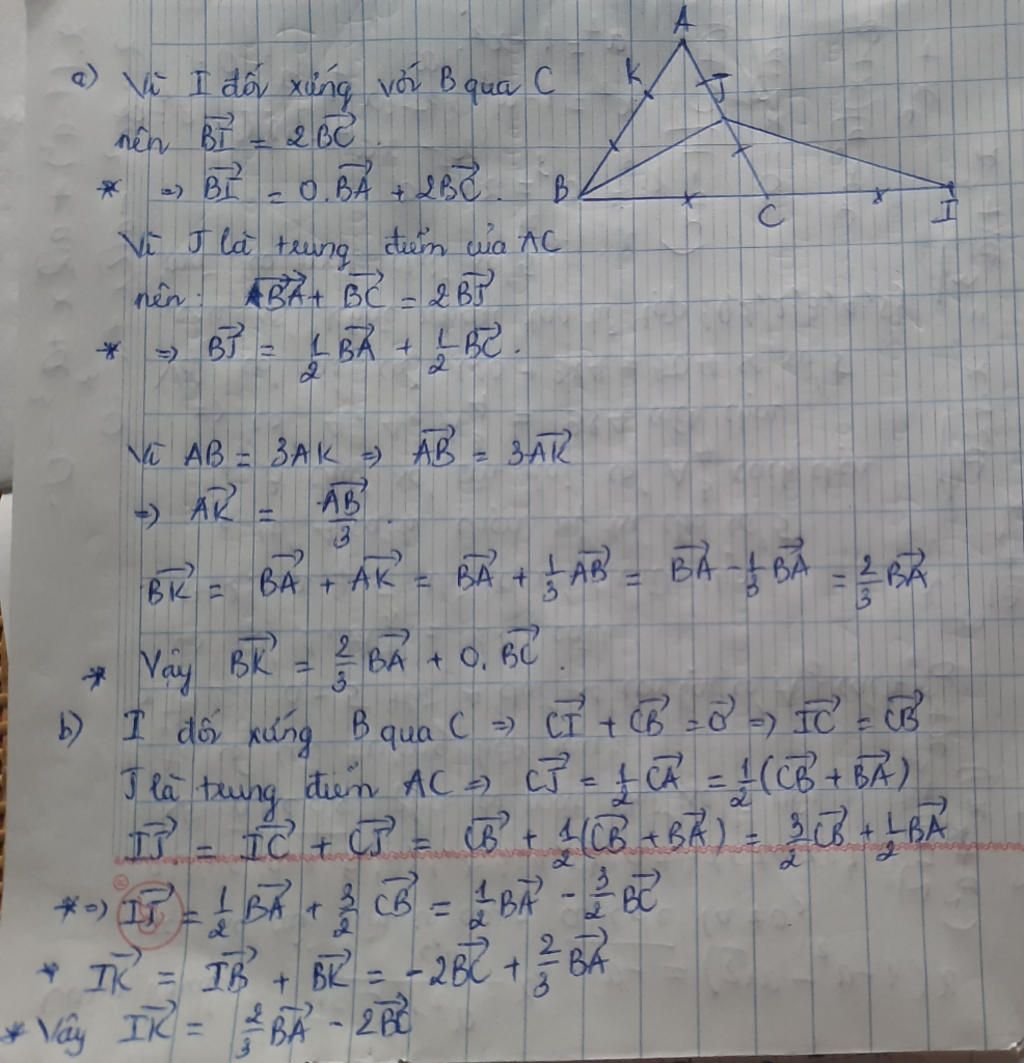 A
K
J
B
C
I
a) Vì I đối xứng với B qua C
nên $\overrightarrow{BI} = 2\overrightarrow{BC}$.
* ⇒ $\overrightarrow{BI} = 0.\overrightarrow{BA} + 2\overrightarrow{BC}$.
Vì J là trung điểm của AC
nên: $\overrightarrow{BA} + \overrightarrow{BC} = 2\overrightarrow{BJ}$
* ⇒ $\overrightarrow{BJ} = \frac{1}{2}\overrightarrow{BA} + \frac{1}{2}\overrightarrow{BC}$.
Vì AB = 3AK ⇒ $\overrightarrow{AB} = 3\overrightarrow{AK}$
⇒ $\overrightarrow{AK} = \frac{\overrightarrow{AB}}{3}$.
$\overrightarrow{BK} = \overrightarrow{BA} + \overrightarrow{AK} = \overrightarrow{BA} + \frac{1}{3}\overrightarrow{AB} = \overrightarrow{BA} - \frac{1}{3}\overrightarrow{BA} = \frac{2}{3}\overrightarrow{BA}$
* Vậy $\overrightarrow{BK} = \frac{2}{3}\overrightarrow{BA} + 0.\overrightarrow{BC}$.
b) I đối xứng B qua C ⇒ $\overrightarrow{CI} + \overrightarrow{CB} = \overrightarrow{0}$ ⇒ $\overrightarrow{IC} = \overrightarrow{CB}$
J là trung điểm AC ⇒ $\overrightarrow{CJ} = \frac{1}{2}\overrightarrow{CA} = \frac{1}{2}(\overrightarrow{CB} + \overrightarrow{BA})$
$\overrightarrow{IJ} = \overrightarrow{IC} + \overrightarrow{CJ} = \overrightarrow{CB} + \frac{1}{2}(\overrightarrow{CB} + \overrightarrow{BA}) = \frac{3}{2}\overrightarrow{CB} + \frac{1}{2}\overrightarrow{BA}$
* ⇒ $\overrightarrow{IJ} = \frac{1}{2}\overrightarrow{BA} + \frac{3}{2}\overrightarrow{CB} = \frac{1}{2}\overrightarrow{BA} - \frac{3}{2}\overrightarrow{BC}$
* $\overrightarrow{IK} = \overrightarrow{IB} + \overrightarrow{BK} = -2\overrightarrow{BC} + \frac{2}{3}\overrightarrow{BA}$
* Vậy $\overrightarrow{IK} = \frac{2}{3}\overrightarrow{BA} - 2\overrightarrow{BC}$